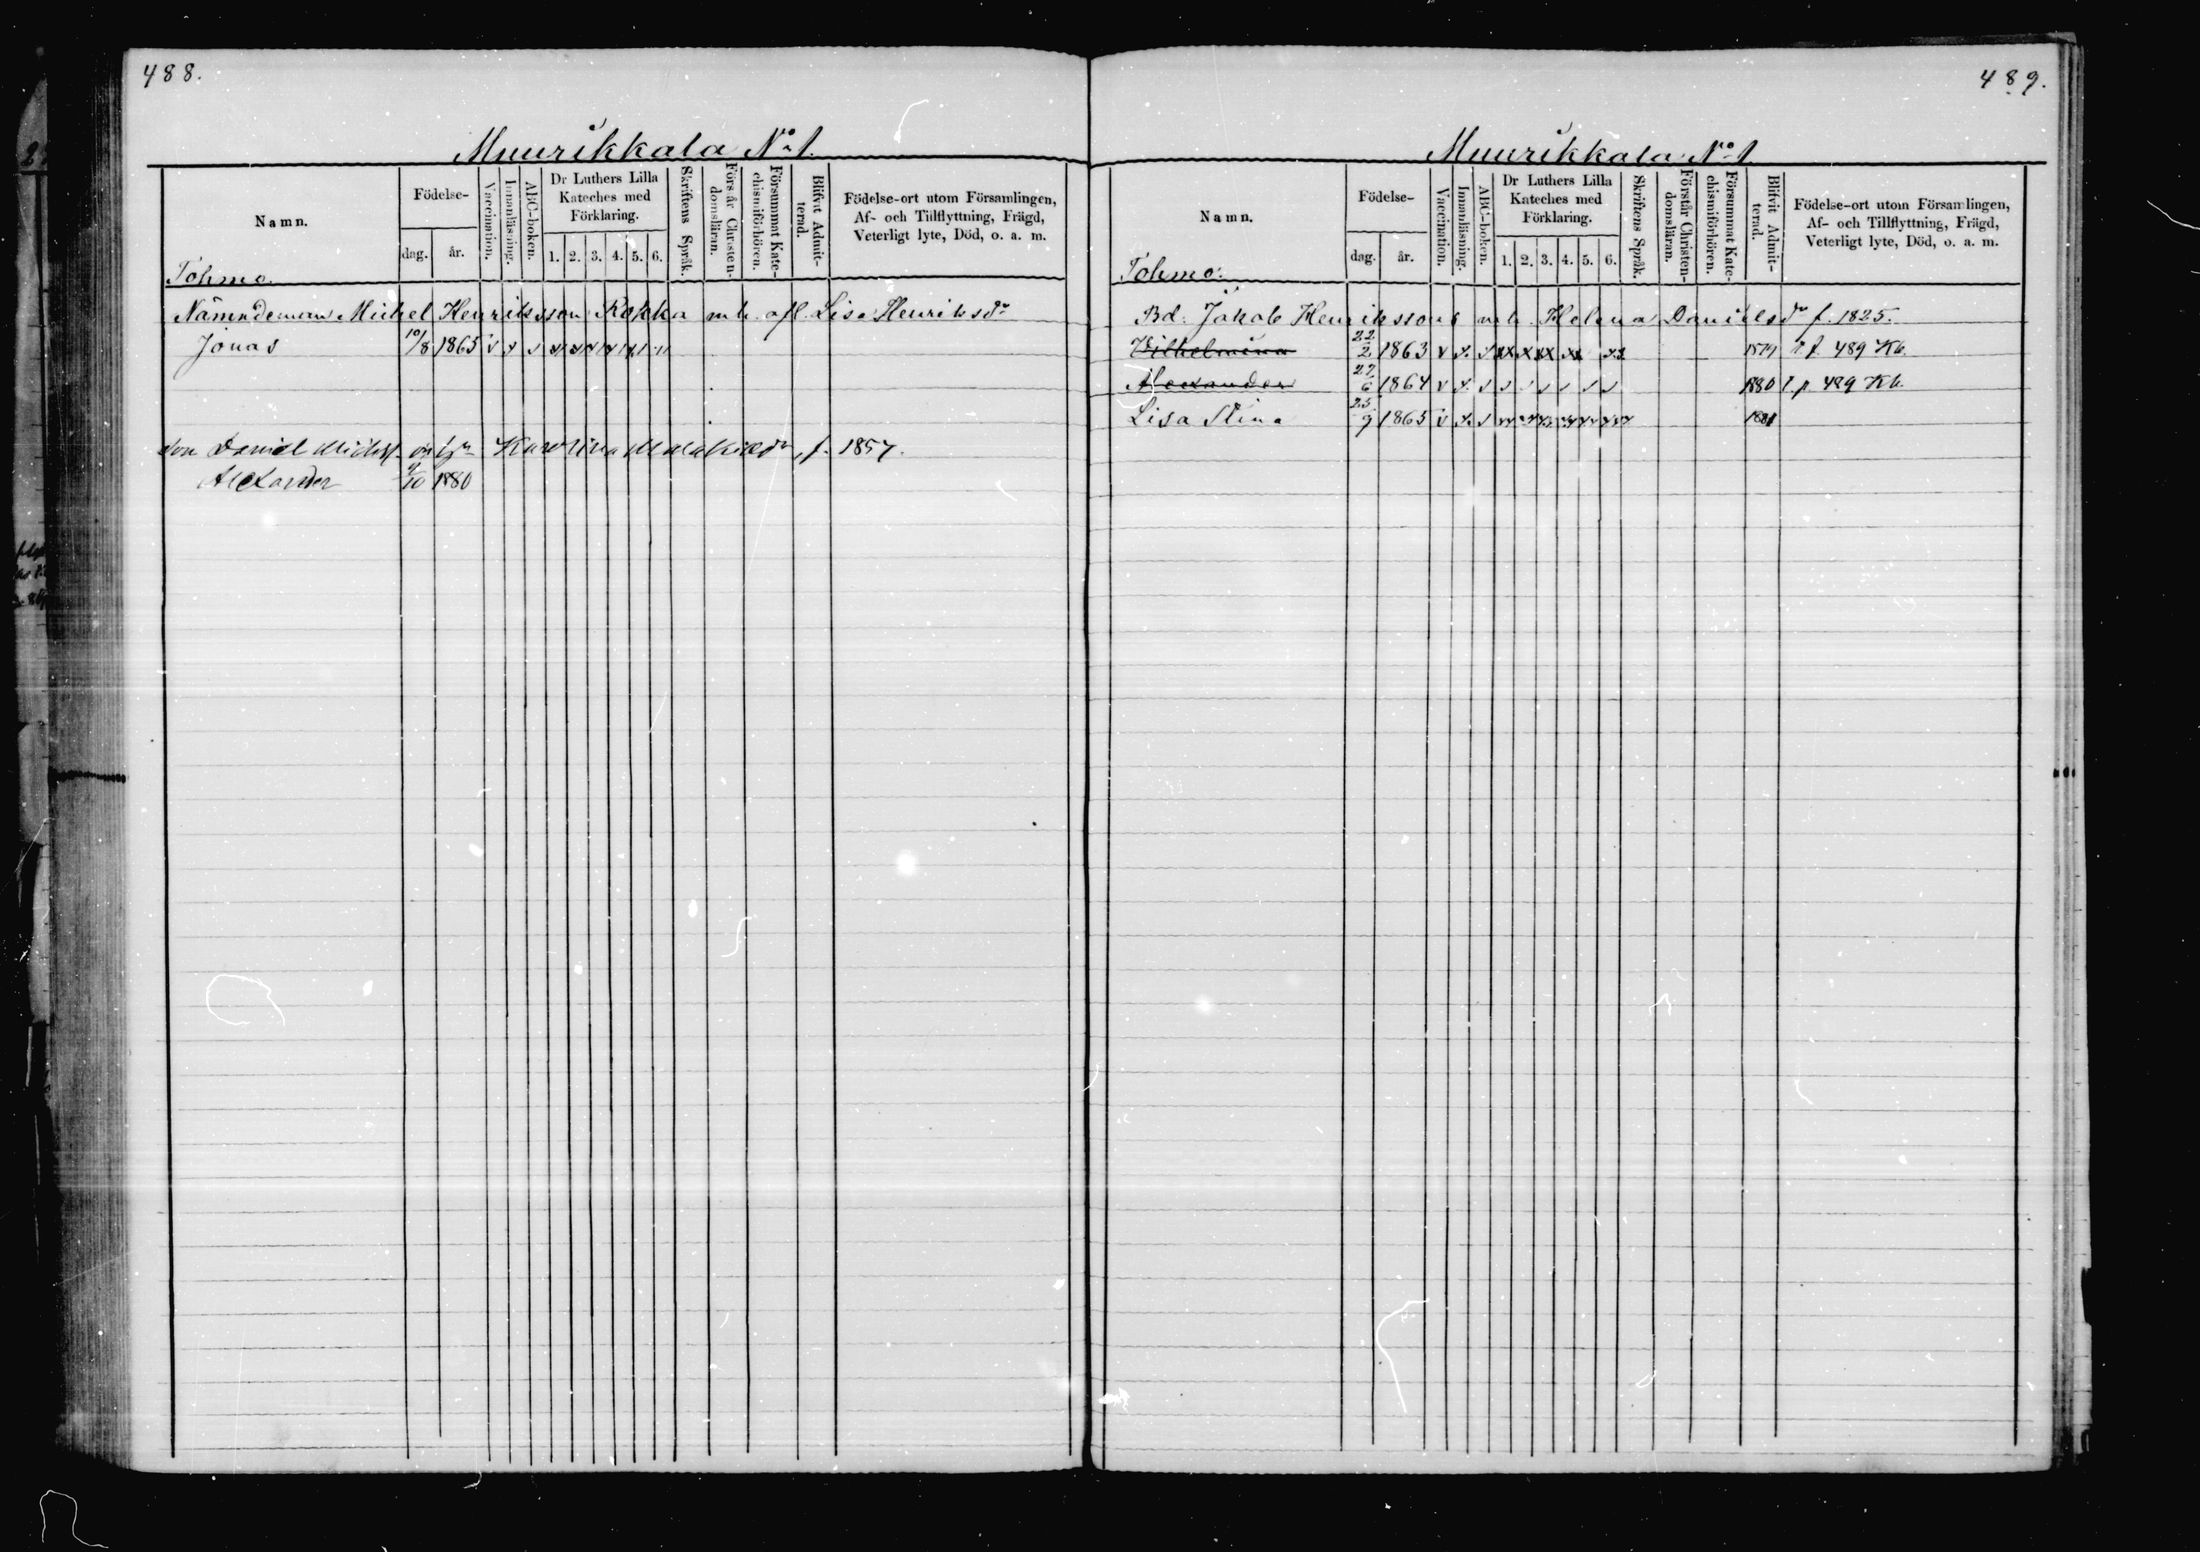 488.
Muurikkala No 1.
Namn.
Födelse-
dag.
år.
Vaccination.
Innanläsning.
ABC-boken.
Dr Luthers Lilla
Kateches med
Förklaring.
1. 2. 3. 4. 5. 6.
Skriftens Språk.
Förstår Christen-
domsläran.
Försummat Kate-
chismiförhören.
Blifvit Admit-
terad.
Födelse-ort utom Församlingen,
Af- och Tillflyttning, Frägd,
Veterligt lyte, Död, o. a. m.
Tohmo.
Nämndeman Michel Henriksson Rokka m h. afl. Lisa Henriksdr
Jonas 10/8 1865 v
Son Daniel Michelss Karolina f. 1857.
Alexander 9/10 1880
489.
Muurikkala No 1.
Namn.
Födelse-
dag.
år.
Vaccination.
Innanläsning.
ABC-boken.
Dr Luthers Lilla
Kateches med
Förklaring.
1. 2. 3. 4. 5. 6.
Skriftens Språk.
Förstår Christen-
domsläran.
Försummat Kate-
chismiförhören.
Blifvit Admit-
terad.
Födelse-ort utom Församlingen,
Af- och Tillflyttning, Frägd,
Veterligt lyte, Död, o. a. m.
Tohmo.
Bd. Jakob Henrikssons m h. Helena Danielsdr f. 1825.
Wilhelmina 22/2 1863 v 1879 T. p. 489 Kb.
Alexander 27/6 1864 v 1880 T. p. 489 Kb.
Lisa Stina 25/9 1865 v 1881